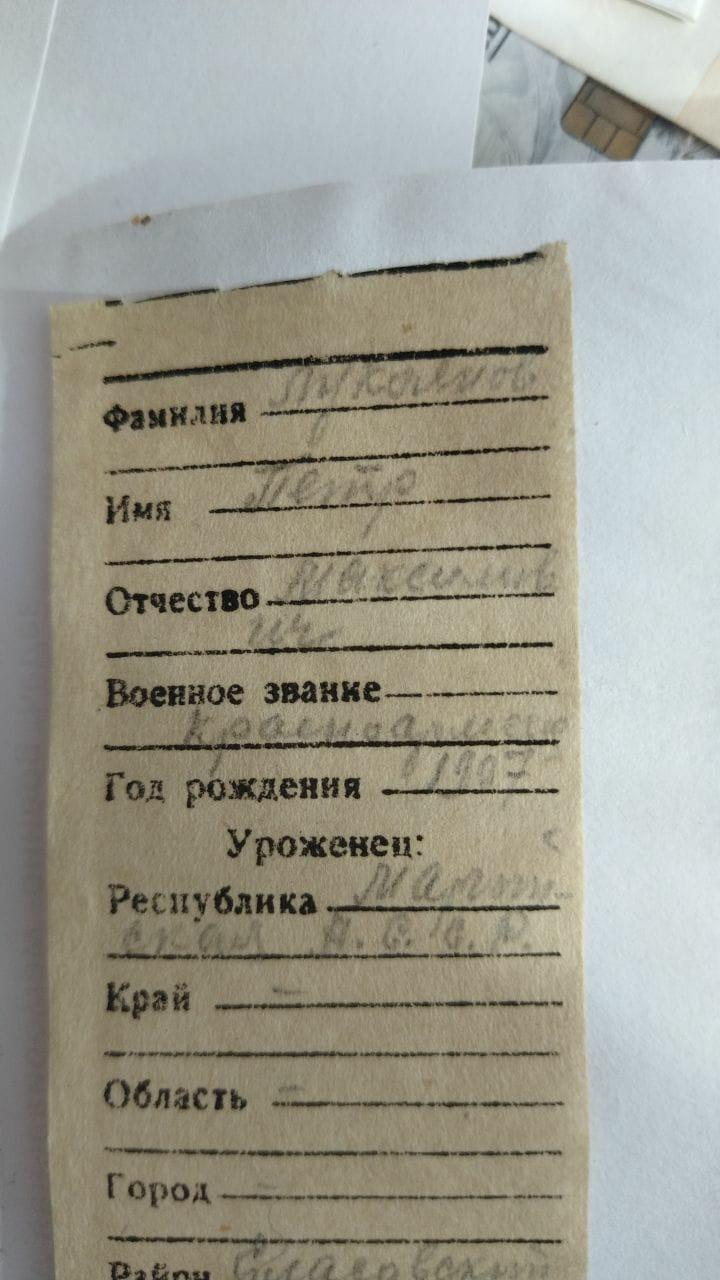 Фамилия Лукоянов
Имя Петр
Отчество Максимов
ич
Военное звание
Красноармеец
Год рождения 1907
Уроженец:
Республика
ская А. С. С. Р.
Край —
Область —
Город —
Район